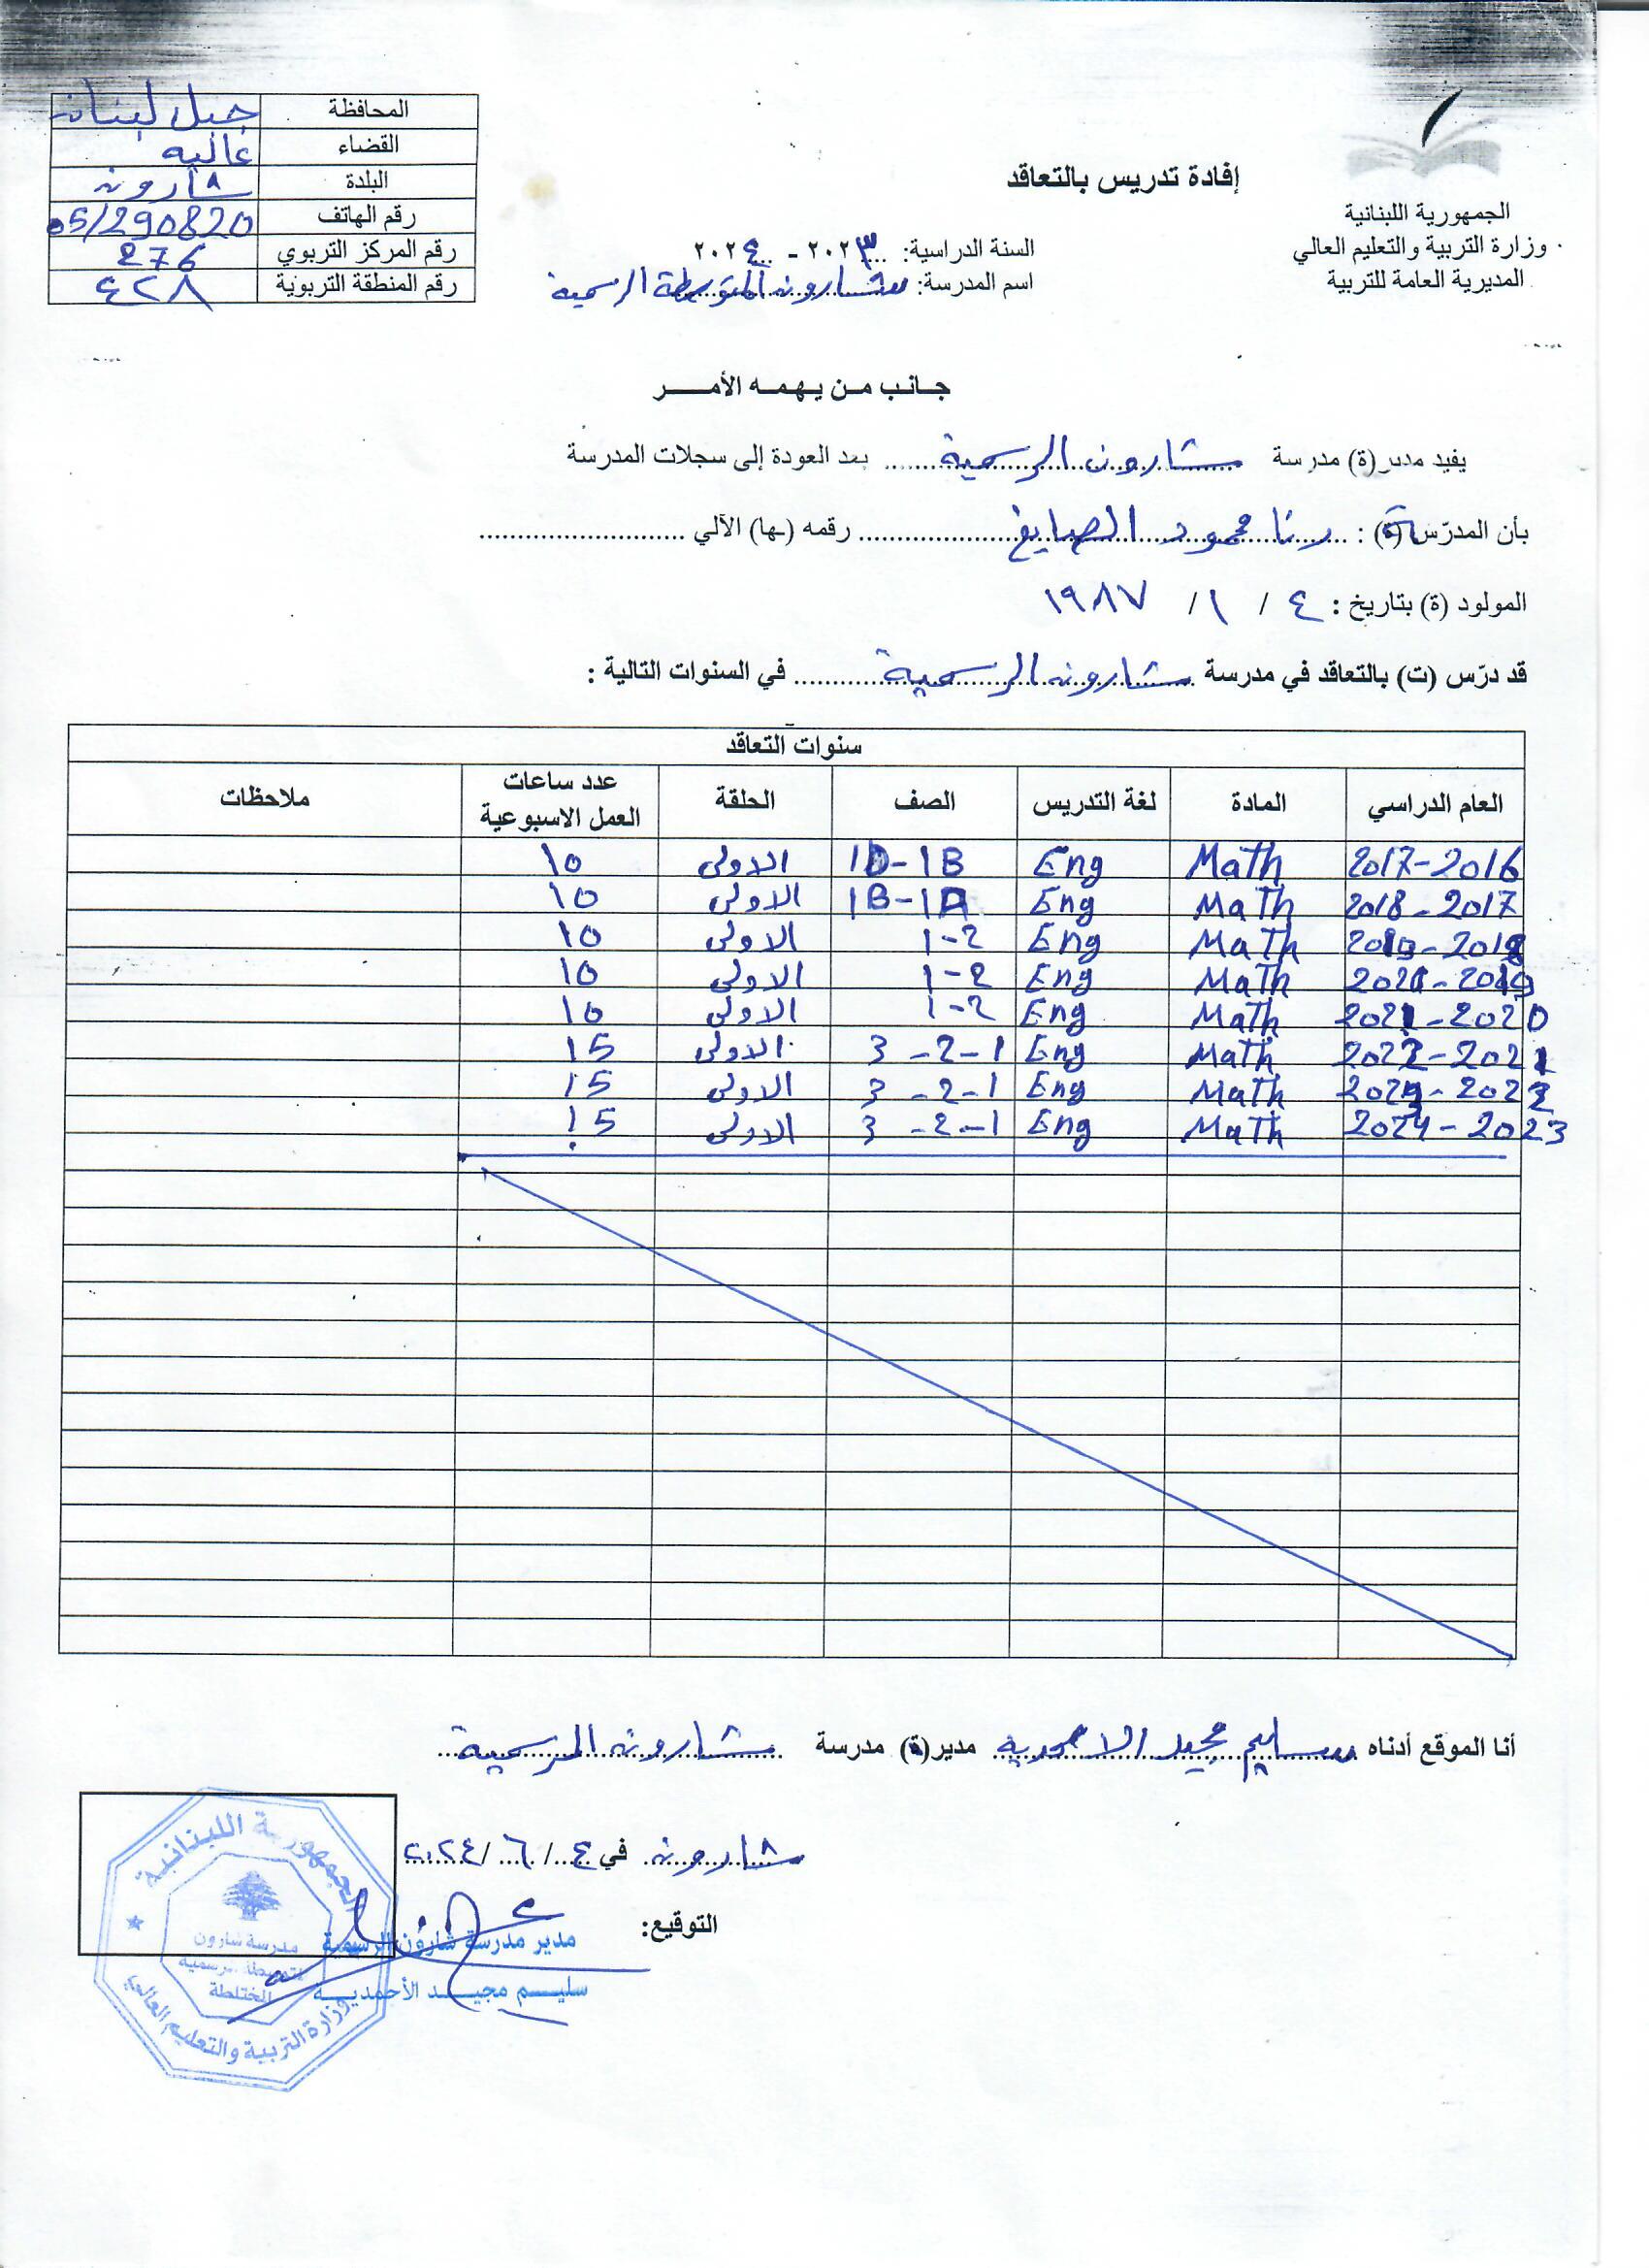 الجمهورية اللبنانية
وزارة التربية والتعليم العالي
المديرية العامة للتربية
إفادة تدريس بالتعاقد
السنة الدراسية: ٢٠٢٣ - ٢٠٢٤
اسم المدرسة: شارون المتوسطة الرسمية
المحافظة جبل لبنان
القضاء عاليه
البلدة شارون
رقم الهاتف 05/290820
رقم المركز التربوي 276
رقم المنطقة التربوية ٤٢٨
جانب من يهمه الأمر
يفيد مدير (ة) مدرسة شارون الرسمية بعد العودة إلى سجلات المدرسة
بأن المدرّس (ة) : رنا محمود الصايغ رقمه (ـها) الآلي
المولود (ة) بتاريخ : ٤ / ١ / ١٩٨٧
قد درّس (ت) بالتعاقد في مدرسة شارون الرسمية في السنوات التالية :
سنوات التعاقد
العام الدراسي المادة لغة التدريس الصف الحلقة عدد ساعات العمل الاسبوعية ملاحظات
2017-2016 Math Eng 1D-1B الاولى 10
2018-2017 Math Eng 1B-1A الاولى 10
2019-2018 Math Eng 1-2 الاولى 10
Math Eng 1-2 الاولى 10
2021-2020 Math Eng 1-2 الاولى 10
2022-2021 Math Eng 3-2-1 الاولى 15
2023-2022 Math Eng 3-2-1 الاولى 15
2024-2023 Math Eng 3-2-1 الاولى 15
أنا الموقع أدناه سليم مجيد الاحمدية مدير(ة) مدرسة شارون الرسمية
شارون في ٤/ ٦/ ٢٠٢٤
التوقيع:
مدير مدرسة شارون الرسمية
سليم مجيد الأحمدية
الجمهورية اللبنانية
مدرسة شارون
المتوسطة الرسمية
المختلطة
وزارة التربية والتعليم العالي